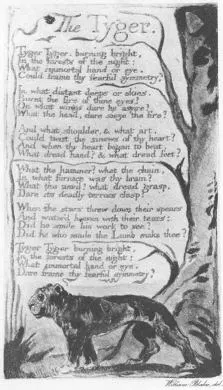 The Tyger.
Tyger Tyger. burning bright,
In the forests of the night:
What immortal hand or eye,
Could frame thy fearful symmetry?
In what distant deeps or skies.
Burnt the fire of thine eyes?
On what wings dare he aspire?
What the hand, dare sieze the fire?
And what shoulder, & what art,
Could twist the sinews of thy heart?
And when thy heart began to beat,
What dread hand? & what dread feet?
What the hammer? what the chain,
In what furnace was thy brain?
What the anvil? what dread grasp,
Dare its deadly terrors clasp?
When the stars threw down their spears
And water'd heaven with their tears:
Did he smile his work to see?
Did he who made the Lamb make thee?
Tyger Tyger burning bright,
In the forests of the night:
What immortal hand or eye,
Dare frame thy fearful symmetry?
William Blake,